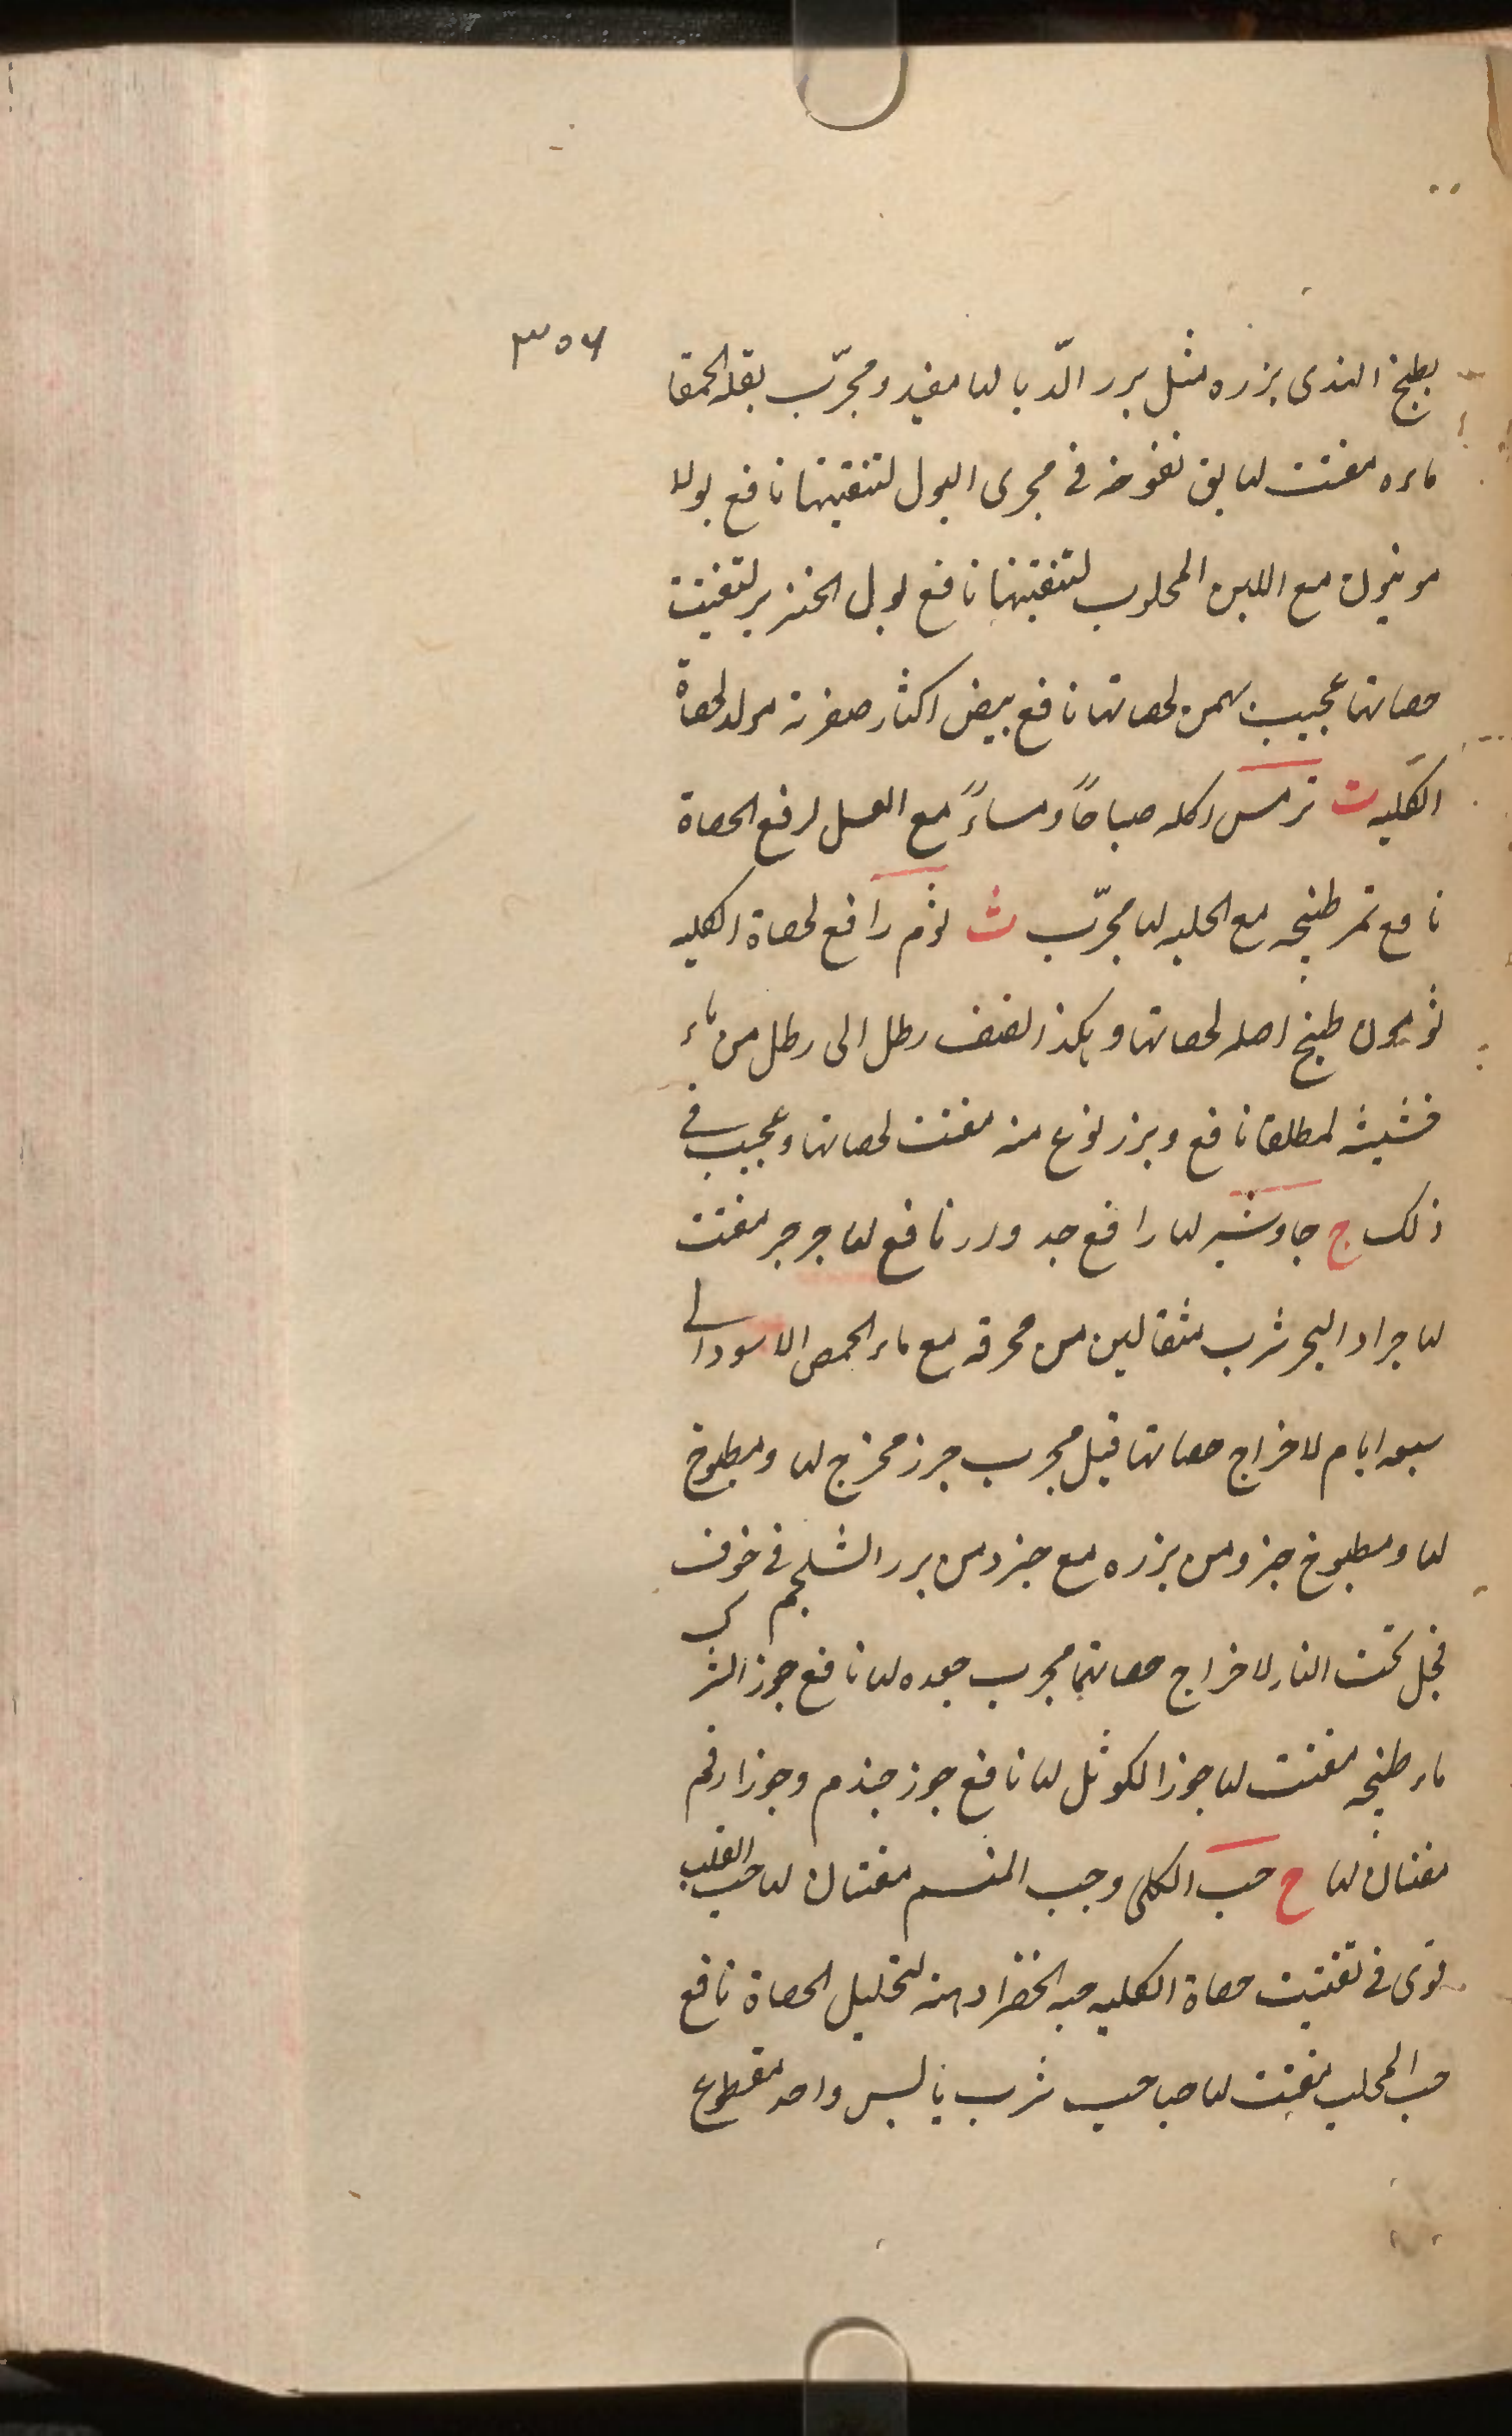 ٣٥٦
بطيخ الهندى بزره مثل بزر الدّبا لها مفيد ومجرّب بقلة الحمقا
ماءه مفتت لها بق نفوخه فى مجرى البول لتنقيتها نافع بولا
مع اللبن المحلوب لتنقيتها نافع بول الخنزير لتفتيت
حصاتها عجيب بهمن لحصاتها نافع بيض اكثار صفرته مولد لحصاة
الكليه ت ترمس اكله صباحاً ومساءً مع العسل لرفع الحصاة
نافع تمر طبيخه مع الحلبه لها مجرّب ث ثوم رافع لحصاة الكليه
طبيخ اصله لحصاتها وهكذا نصف رطل الى رطل من ماء
لمطلقا نافع وبزر نوع منه مفتت لحصاتها وعجيب فى
ذلك ج جاوشير لها رافع جدوار نافع لها جرجر مفتت
لها جراد البحر شرب مثقالين من محرقه مع ماء الحمص الاسود الى
سبعه ايام لاخراج حصاتها قيل مجرب جزر مخرج لها ومطبوخ
لها ومطبوخ جزو من بزره مع جزو من بزر الشلجم فى خوف
فجل تحت النار لاخراج حصاتها مجرب جعده لها نافع جوز الشرك
ماء طبيخه مفتت لها جوز الكوثل لها نافع جوز جندم وجوز ارقم
مفتتان لها ح حب الكلى وحب المنسم مفتتان لها حب القلب
قوى فى تفتيت حصاة الكليه حبه الخضرا دهنه لتحليل الحصاة نافع
حب المحلب مفتت لها حباحب شرب يابس واحد مقطوع